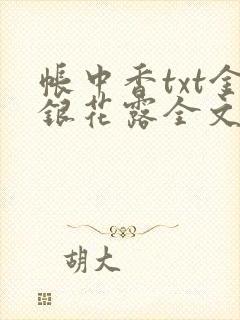 帐中香txt金
银花露全文
胡大